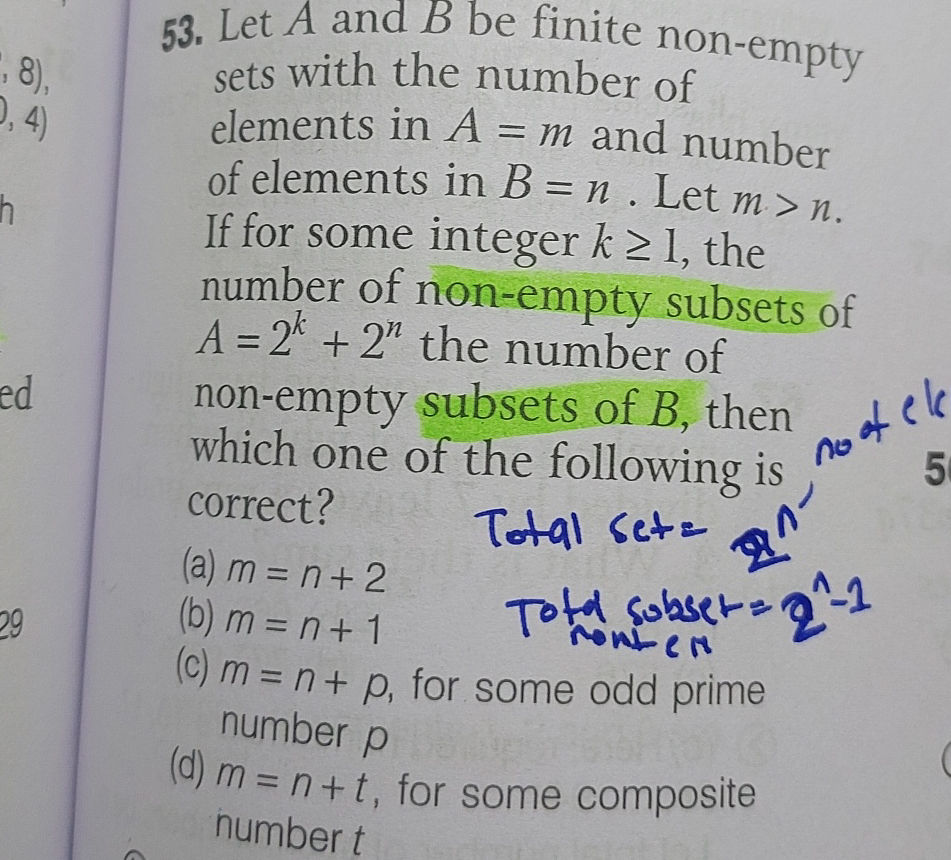 , 8),
, 4)
h
ed
29
53. Let A and B be finite non-empty
sets with the number of
elements in A = m and number
of elements in B = n . Let m > n.
If for some integer k ≥ 1, the
number of non-empty subsets of
A = 2^k + 2^n the number of
non-empty subsets of B, then
which one of the following is
correct?
(a) m = n + 2
(b) m = n + 1
(c) m = n + p, for some odd prime
number p
(d) m = n + t, for some composite
number t
no of ele
Total set = 2^n
Total subset = 2^n-1
5